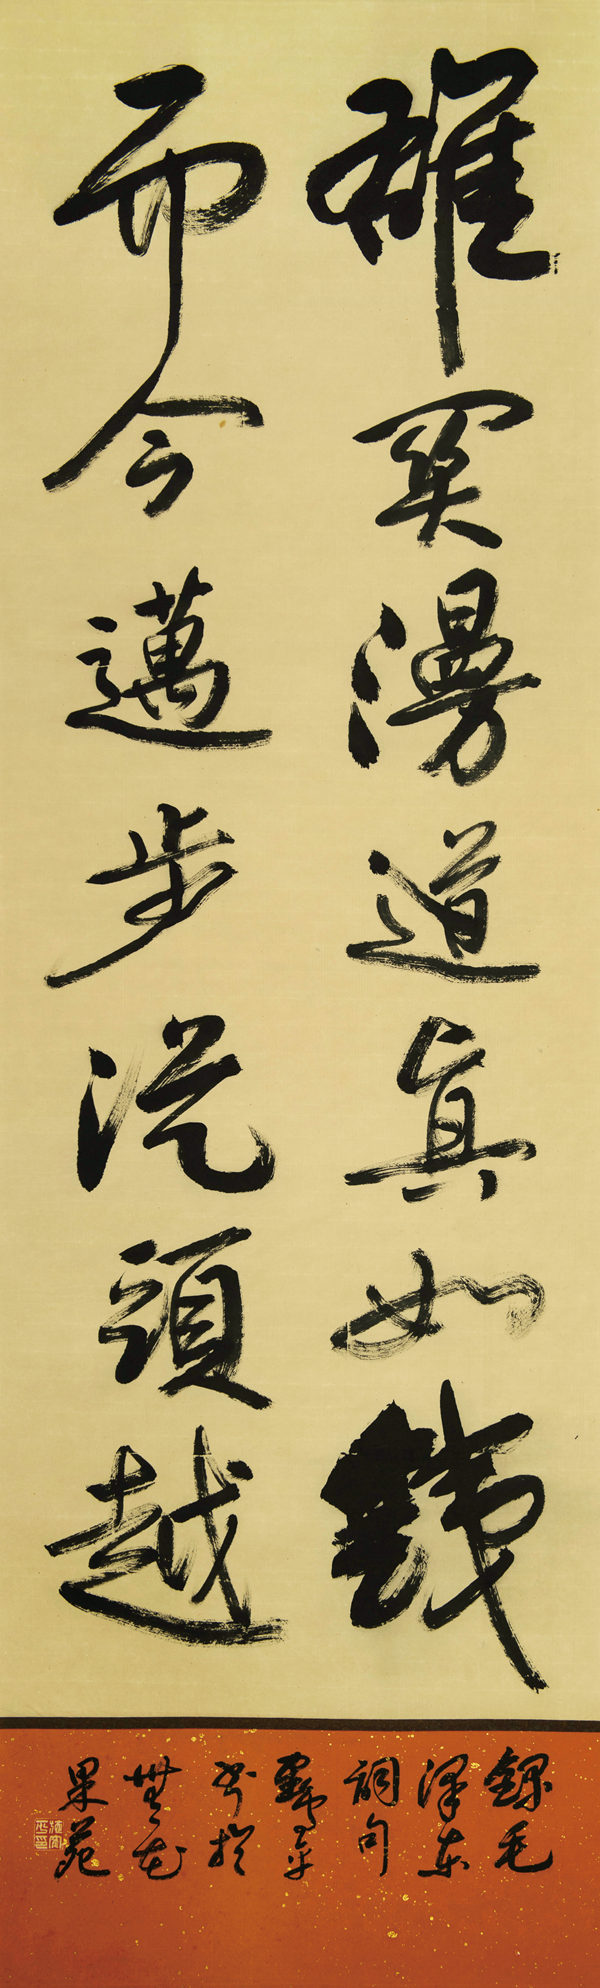 雄關漫道真如鐵
而今邁步從頭越
錄毛
澤東
詞句
书於
無花
果苑